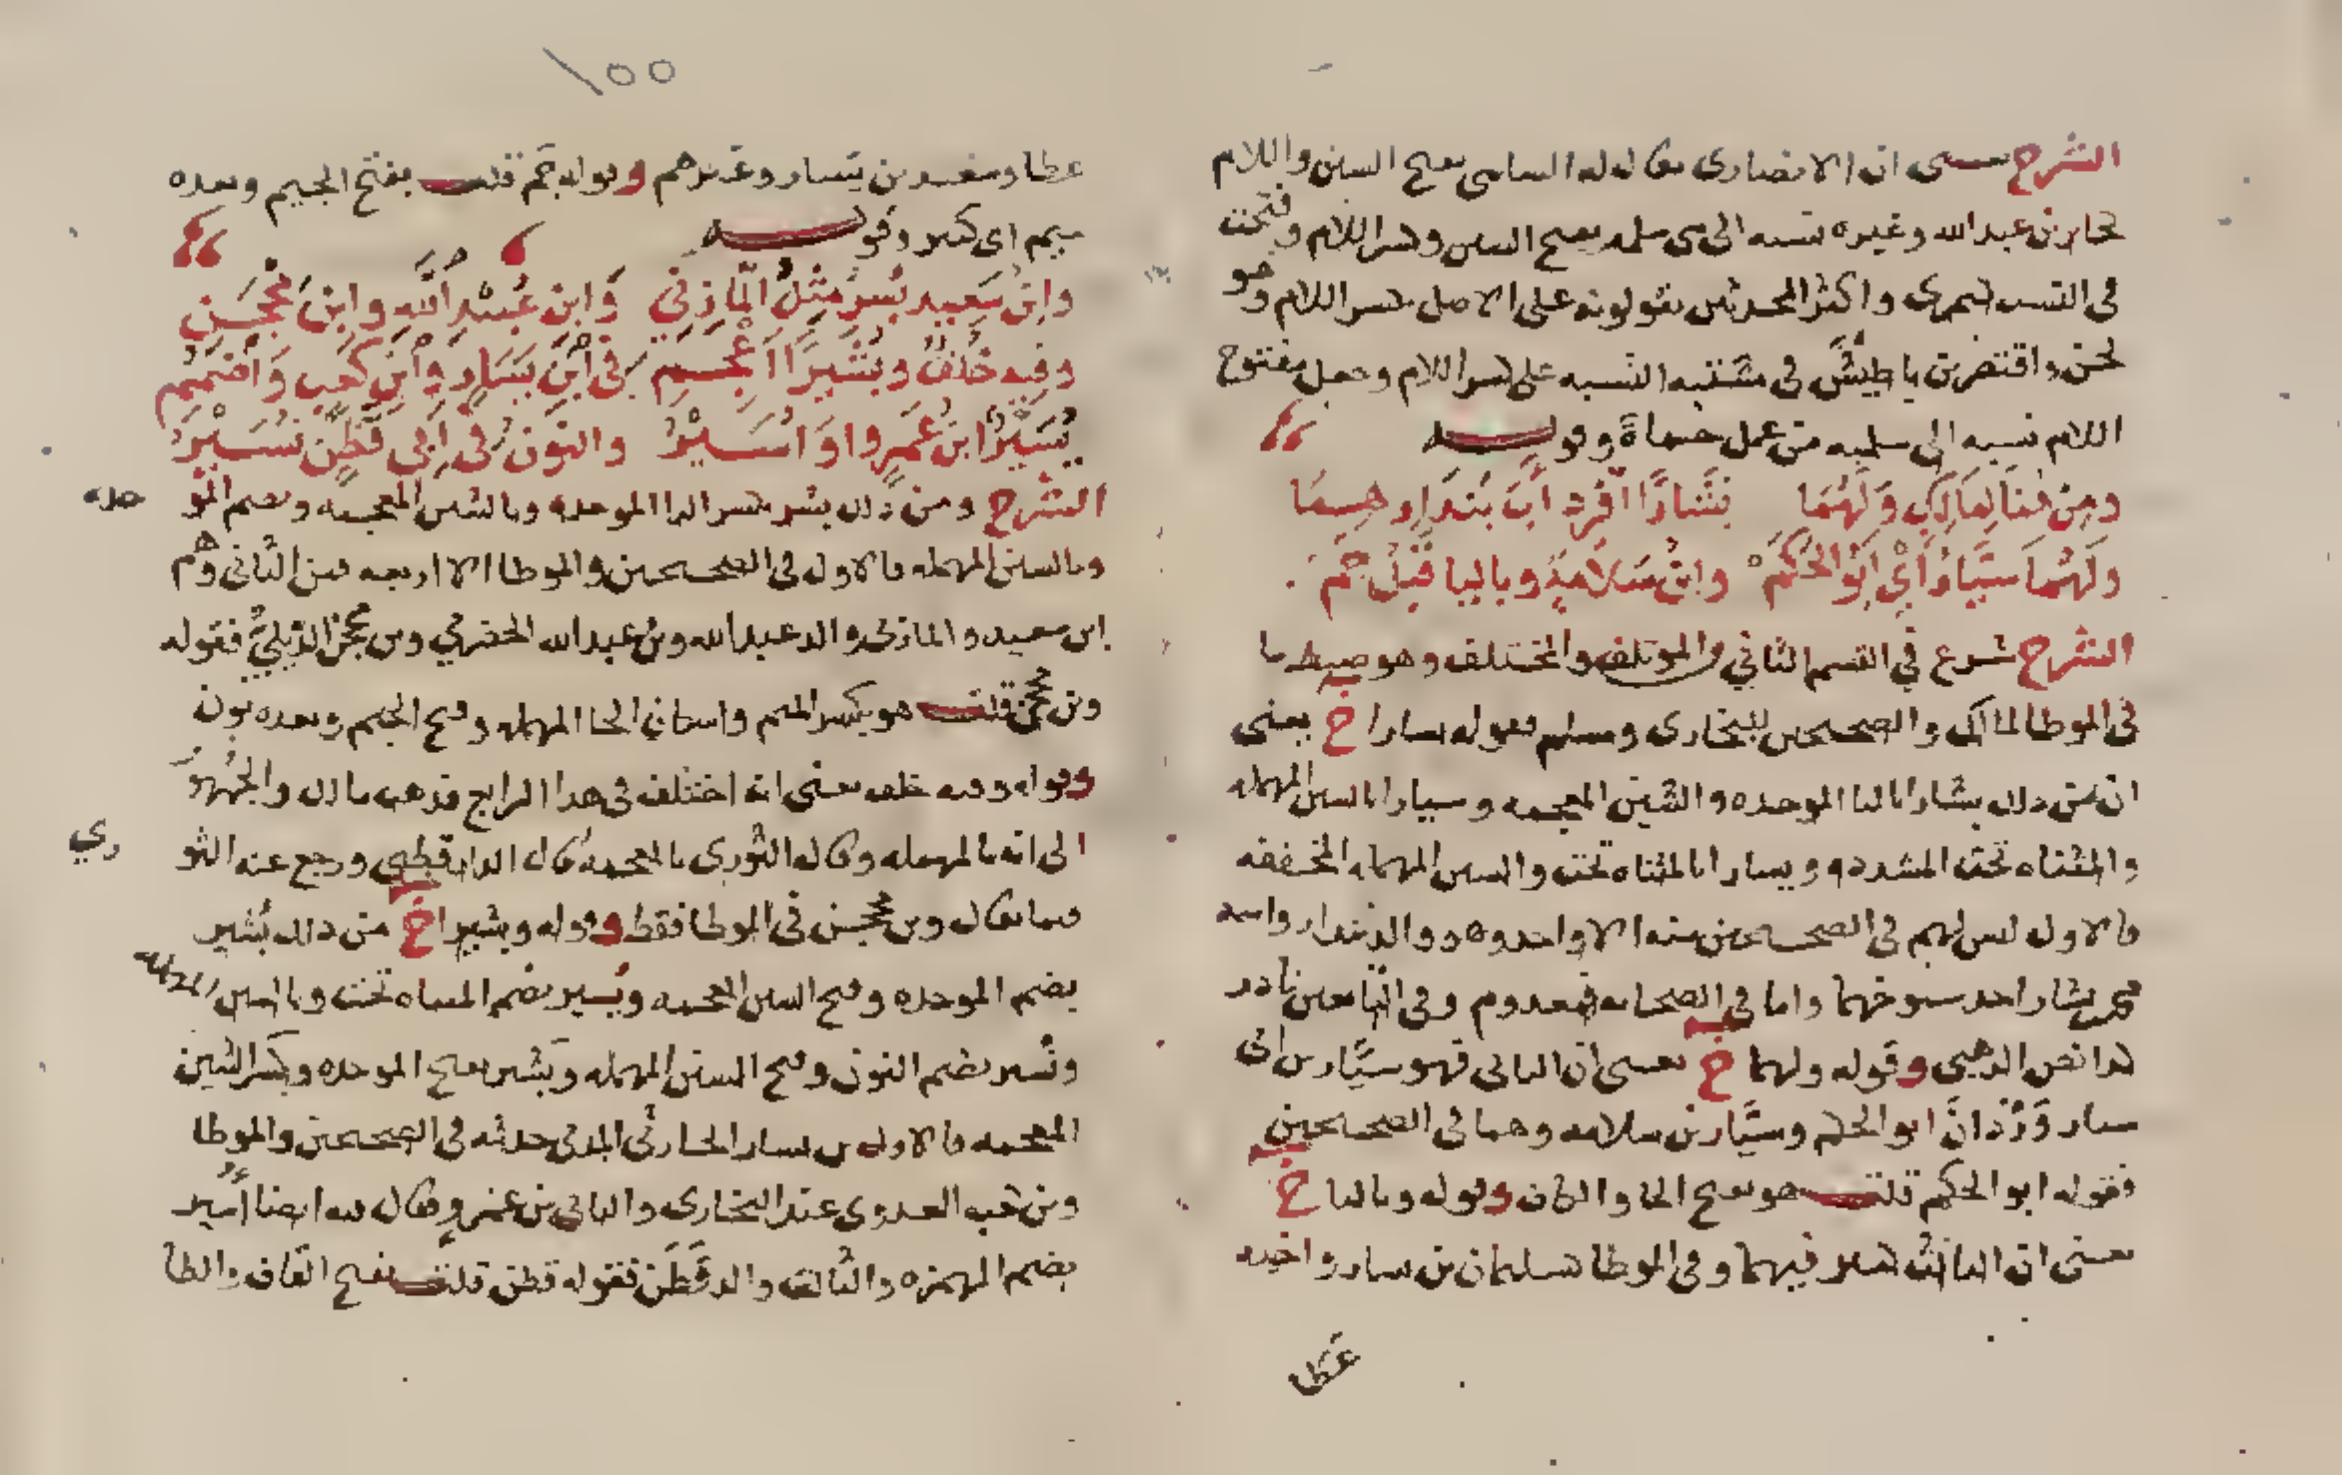 الشرح يعني ان الانصاري يقال له السلمي بفتح السين واللام
كجابر بن عبدالله وغيره نسبه الى بني سلمه بفتح السين وكسر اللام وفتحت
في النسب كنمري واكثر المحدثين يقولونه على الاصل بكسر اللام وهو
لحن واقتصر بن باطيش في مشتبه النسبه على كسر اللام وجعل مفتوح
اللام نسبه الى سلميه من عمل حماة وقوله
ومن هنا لمالك ولهما بشارا افرد اب بندار هما
ولهما سيار اي ابو الحكم وابن سلامة وباليا قبل جم
الشرح شرع في القسم الثاني والموتلف والمختلف وهو ضبط ما
في الموطا لمالك والصحيحين للبخاري ومسلم فقوله بشارا خ يعني
ان من ذلك بشارا بالبا الموحده والشين المعجمه وسيارا بالسين المهمله
والمثناه تحت المشدده ويسارا بالمثناه تحت والسين المهمله المخففه
فالاول ليس لهم في الصحيحين منه الا واحد وهو والد بندار واسمه
محمد بن بشار احد شيوخهما واما في الصحابه فمعدوم وفي التابعين نادر
كذا نص الذهبي وقوله ولهما خ يعني ان الثاني فهو سيار بن ابي
سيار وردان ابو الحكم وسيار بن سلامه وهما في الصحيحين
فقوله ابو الحكم قلت هو بفتح الحا والكاف وقوله وباليا خ
يعني ان الثالث كثير فيهما وفي الموطا كسليمان بن يسار واخيه
عطا
١٥٥
عطا وسعيد بن يسار وغيرهم وقوله جم قلت بفتح الجيم وبعده
ميم اي كثير وقوله
وابن سعيد بسر مثل المازني وابن عبيد الله وابن محجن
وفيه خلف وبشيرا اعجم في ابن يسار وابن كعب واضمم
يسير ابن عمرو او اسير والنون في ابي قطن نسير
الشرح ومن ذلك بشر بكسر البا الموحده وبالشين المعجمه وبضم المو حده
وبالسين المهمله فالاول في الصحيحين والموطا الا اربعه فمن الثاني وهم
ابن سعيد والمازني والد عبدالله وبن عبيدالله الحضرمي وبن محجن الديلي فقوله
وبن محجن قلت هو بكسر الميم واسكان الحا المهمله وفتح الجيم وبعده نون
وقوله وفيه خلف يعني انه اختلف في هذا الرابع فذهب مالك والجمهو
الى انه بالمهمله وقال الثوري بالمعجمه قال الدارقطني ورجع عنه الثو ري
فيما يقال وبن محجن في الموطا فقط وقوله وبشيرا خ من ذلك بشير
بضم الموحده وفتح الشين المعجمه ويسير بضم المثناه تحت وبالسين المهمله
ونسير بضم النون وفتح السين المهمله وبشير بفتح الموحده وبكسر الشين
المعجمه فالاول بن يسار الحارثي المدني حديثه في الصحيحين والموطا
وبن كعب العدوي عند البخاري والثاني بن عمرو وقال فيه ايضا اسير
بضم الهمزه والثالث والد قطن فقوله قطن قلت بفتح القاف والطا